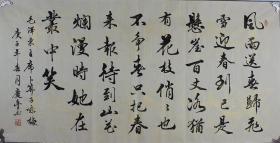 風雨送春歸飛
雪迎春到已是
懸崖百丈冰猶
有花枝俏俏也
不争春只把春
来報待到山花
爛漫時她在
叢中笑
毛泽东主席卜算子咏梅
庚子年春月